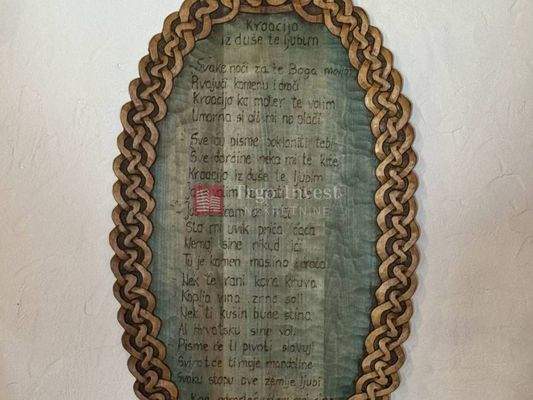 Kroacijo
iz duše te ljubim
Svake noći za te Boga molim
Kroacijo ka mater te volim
Umorna si ali mi ne plači
Sve ću pisme pokloniti tebi
Sve đardine neka mi te kite
Kroacijo iz duše te ljubim
Što mi uvik priča ćaća
Nemoj sine nikud ići
Tu je kamen maslina i drača
Nek te rani kora kruva
Kaplja vina zrno soli
Nek ti kušin bude stina
Al Hrvatsku sine voli
Pisme će ti pivati slavuji
Svirat će ti moje mandoline
Svaku stopu ove zemlje ljubi